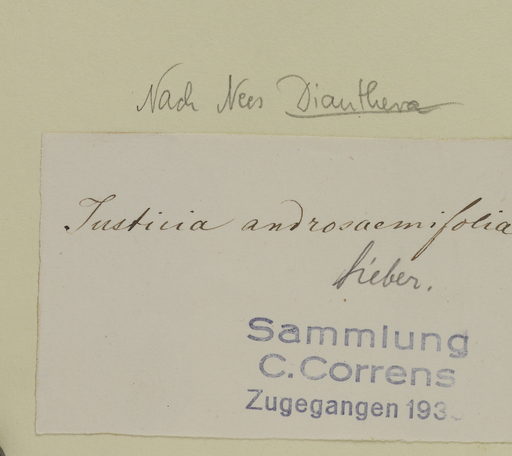 Nach Nees Dianthera
Justicia androsaemifolia
Sieber.
Sammlung
C. Correns
Zugegangen 193